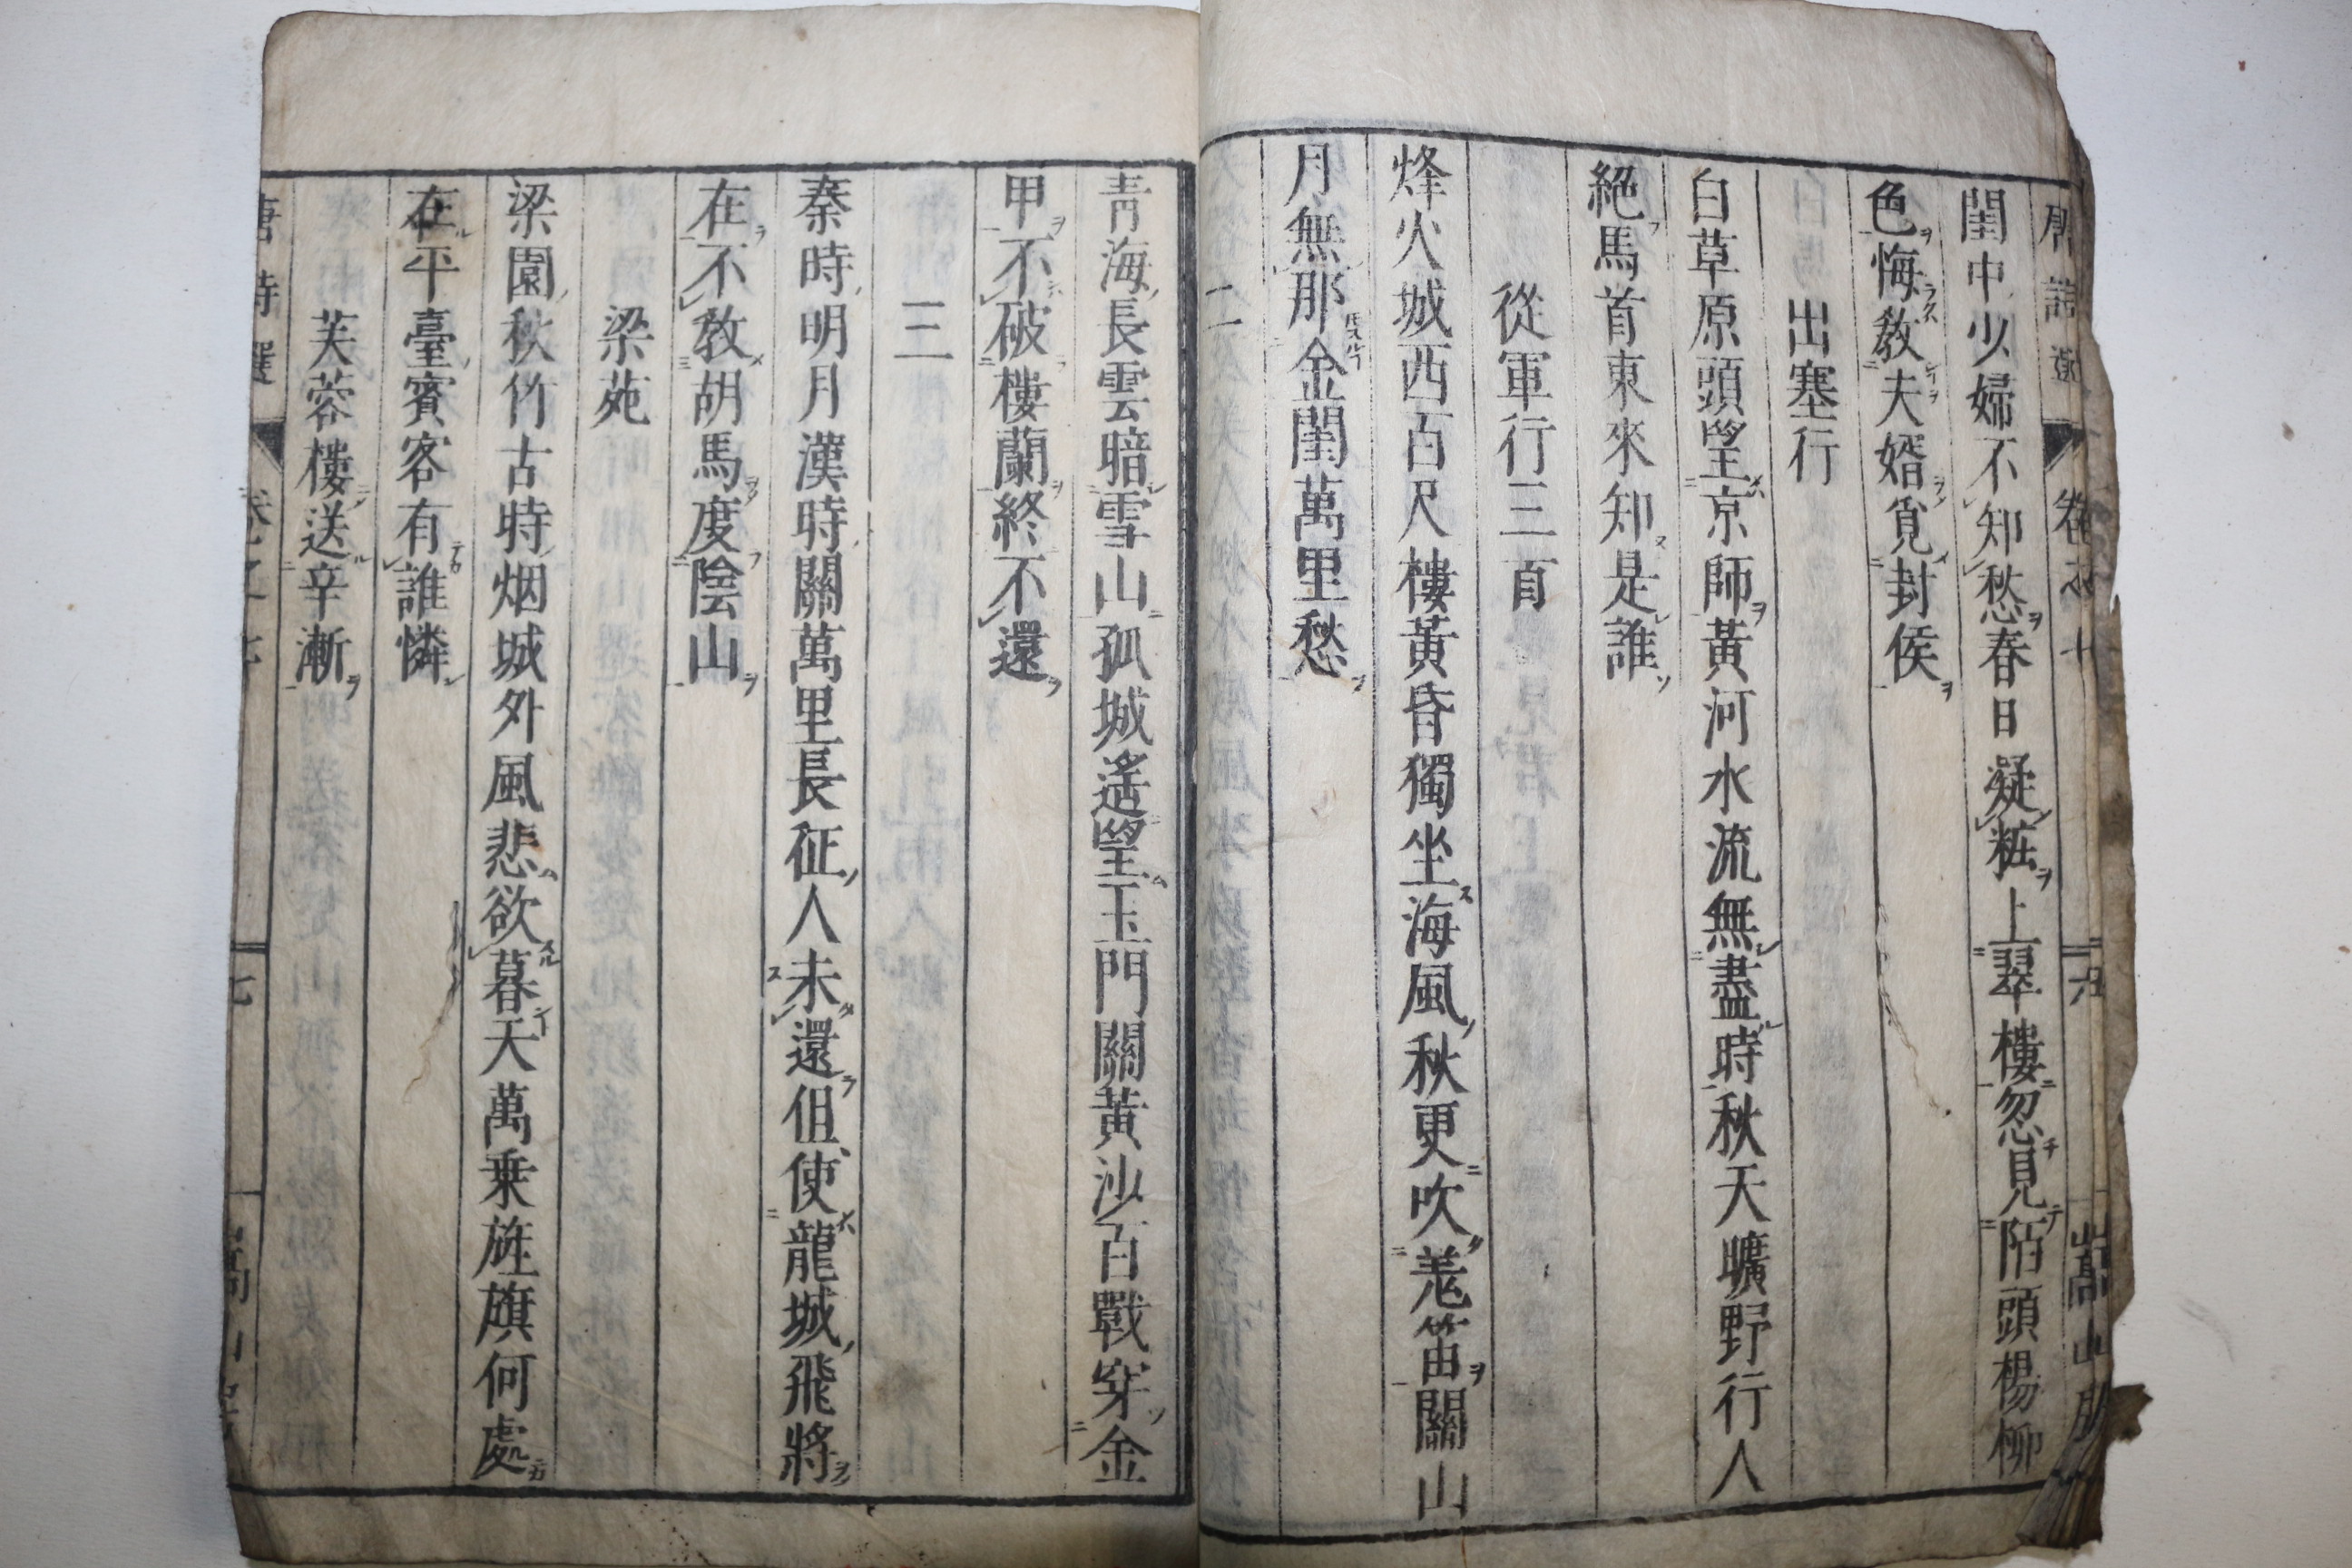 唐詩選 卷之七 六 嵩山房
閨中少婦不知愁春日凝粧上翠樓忽見陌頭楊柳
色悔教夫婿覓封侯
出塞行
白草原頭望京師黃河水流無盡時秋天曠野行人
絕馬首東來知是誰
從軍行三首
烽火城西百尺樓黃昏獨坐海風秋更吹羌笛關山
月無那金閨萬里愁
二
青海長雲暗雪山孤城遙望玉門關黃沙百戰穿金
甲不破樓蘭終不還
三
秦時明月漢時關萬里長征人未還但使龍城飛將
在不教胡馬度陰山
梁苑
梁園秋竹古時烟城外風悲欲暮天萬乗旌旗何處
在平臺賓客有誰憐
芙蓉樓送辛漸
唐詩選 卷之七 七 嵩山房